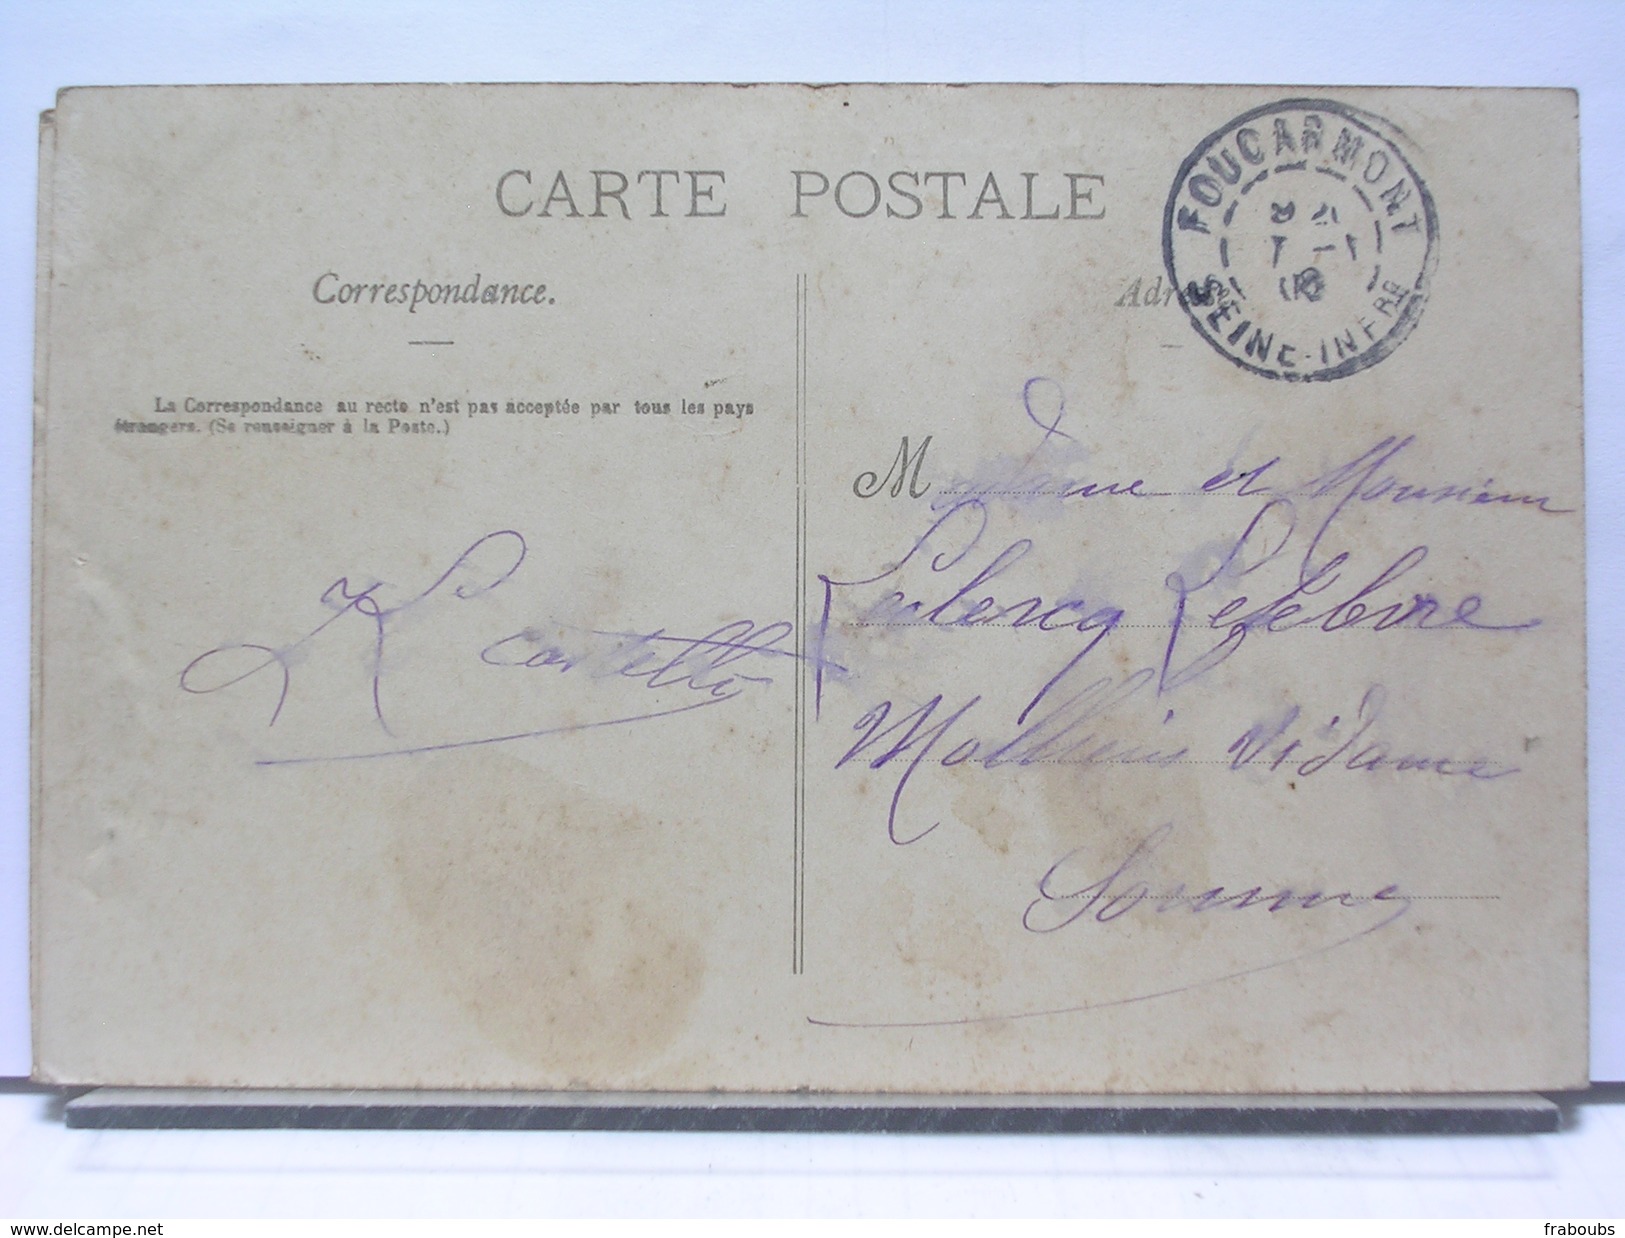 CARTE POSTALE
FOUCARMONT
SEINE-INFRE
Correspondance.
La Correspondance au recto n'est pas acceptée par tous les pays
étrangers. (Se renseigner à la Poste.)
Madame et Monsieur
Leclercq Lefebvre
Molliens Vidame
Somme
delcampe.net
fraboubs